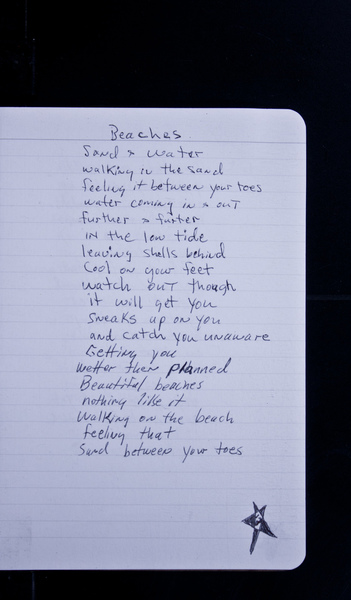 Beaches
Sand & water
walking in the sand
feeling it between your toes
water coming in & out
further & furter
in the low tide
leaving shells behind
Cool on your feet
watch out though
it will get you
sneaks up on you
and catch you unaware
Getting you
wetter then planned
Beautiful beaches
nothing like it
walking on the beach
feeling that
sand between your toes